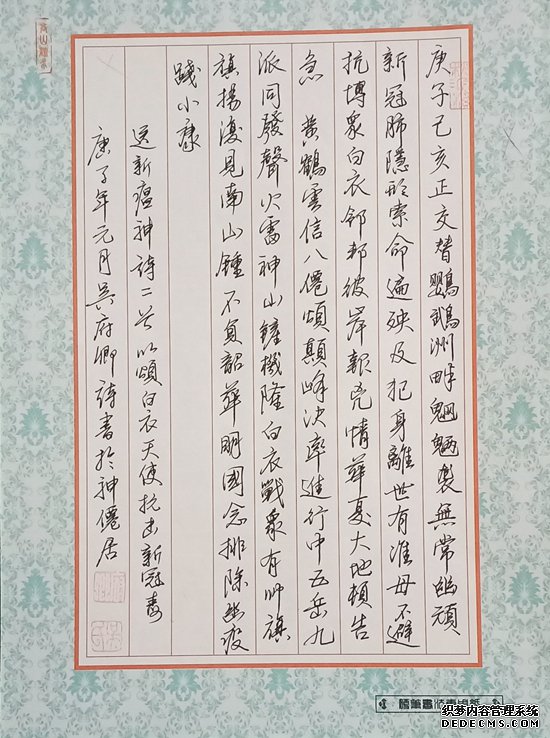 庚子己亥正交替鸚鵡洲畔魍魎製無常幽頑
新冠肺隱形索命遍殃及犯身離世有淮毋不避
抗博衆白衣鄰邦彼岸報兇情華夏大地頓告
急 黄鶴雲信八僊頌顛峰決率進行中五岳九
派同發聲火雷神山鐘機隆白衣戰衆有帅旗
旗揚漫見南山鍾不負韶華明國念排除幽疫
踐小康
送新瘟神詩二首以頌白衣天使抗击新冠毒
庚子年元月吴府卿詩書於神僊居
织梦内容管理系统
DEDECMS.COM